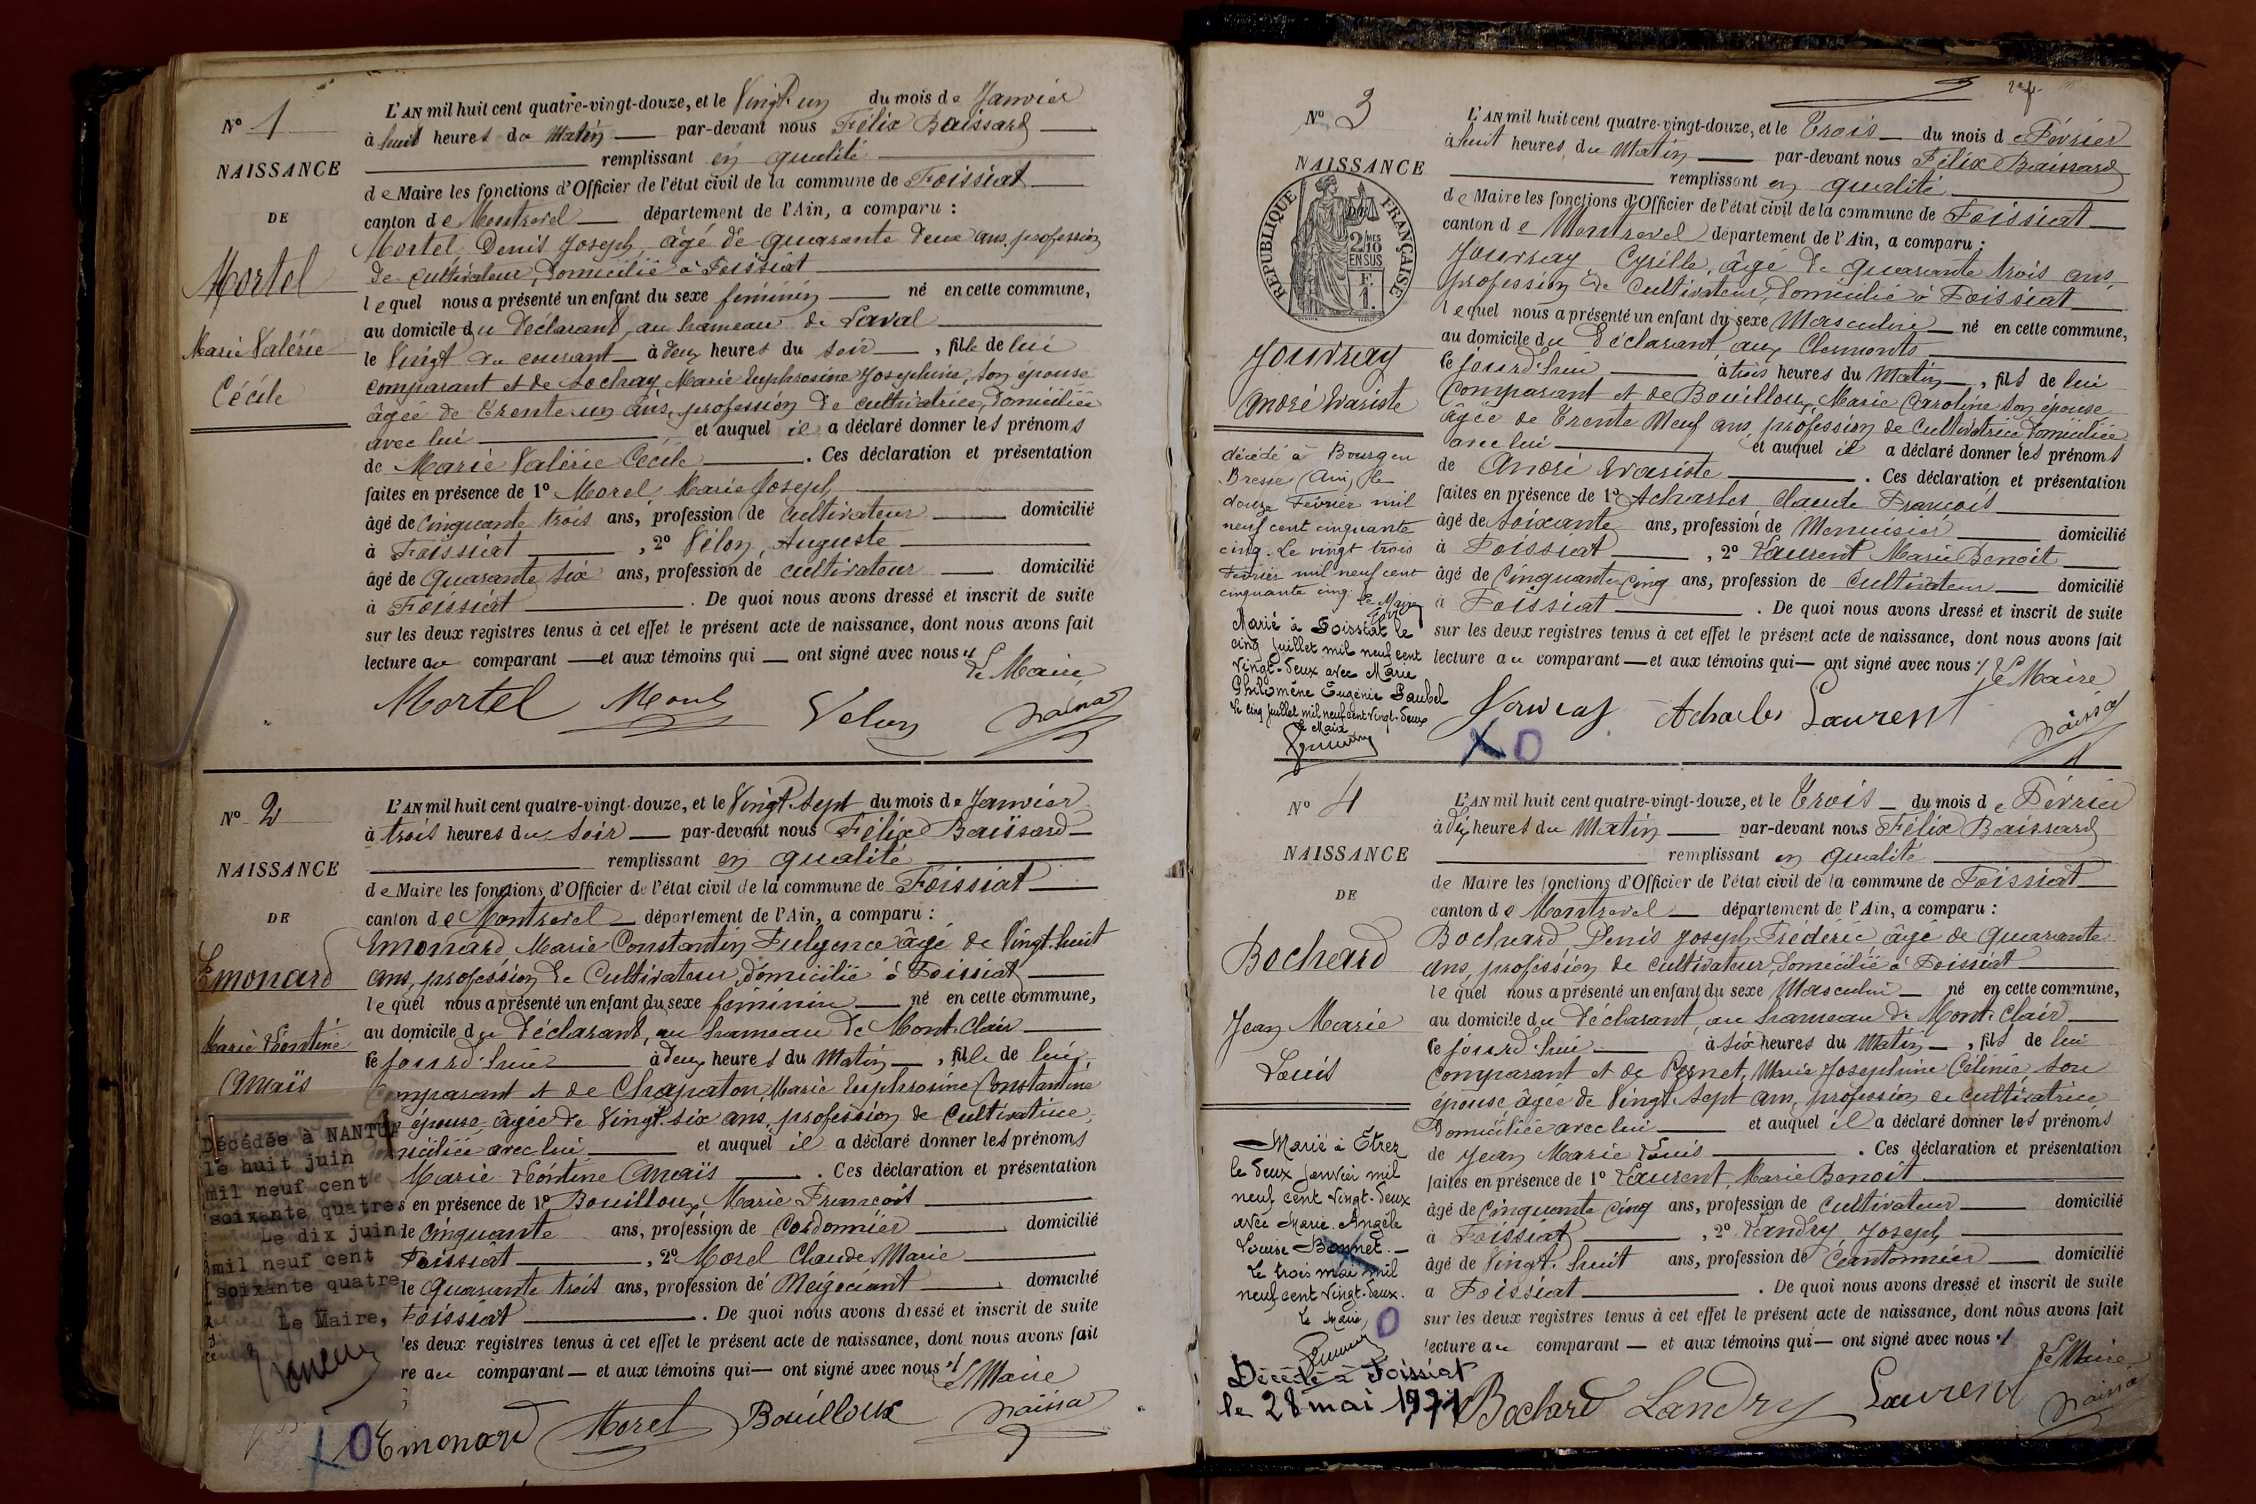 N° 1
NAISSANCE
DE
Mortel
Marie Valérie
Cécile
L'AN mil huit cent quatre-vingt-douze, et le Vingt un du mois de Janvier
à huit heures du Matin par-devant nous Félix Baissard
remplissant en qualité
de Maire les fonctions d'Officier de l'état civil de la commune de Foissiat
canton de Montrevel département de l'Ain, a comparu :
Mortel Denis Joseph âgé de quarante deux ans, profession
de cultivateur, domicilié à Foissiat
lequel nous a présenté un enfant du sexe féminin né en cette commune,
au domicile du Déclarant, au hameau de Laval
le Vingt du courant à deux heures du soir, fille de lui
comparant et de Sochay Marie Euphrosine Joséphine, son épouse
âgée de trente un ans, profession de cultivatrice, domiciliée
avec lui et auquel il a déclaré donner les prénoms
de Marie Valérie Cécile. Ces déclaration et présentation
faites en présence de 1° Morel Marie Joseph
âgé de cinquante trois ans, profession de cultivateur domicilié
à Foissiat, 2° Velon, Auguste
âgé de quarante six ans, profession de cultivateur domicilié
à Foissiat. De quoi nous avons dressé et inscrit de suite
sur les deux registres tenus à cet effet le présent acte de naissance, dont nous avons fait
lecture au comparant et aux témoins qui ont signé avec nous
Le Maire
Mortel Velon
N° 2
NAISSANCE
DE
Emonard
Marie Léontine
Anaïs
Décédée à NANTUA
le huit juin
mil neuf cent
soixante quatre
Le dix juin
mil neuf cent
soixante quatre
Le Maire,
L'AN mil huit cent quatre-vingt-douze, et le Vingt-sept du mois de Janvier
à trois heures du soir par-devant nous Félix Baissard
remplissant en qualité
de Maire les fonctions d'Officier de l'état civil de la commune de Foissiat
canton de Montrevel département de l'Ain, a comparu :
Emonard Marie Constantin Fulgence âgé de Vingt-huit
ans, profession de Cultivateur, domicilié à Foissiat
lequel nous a présenté un enfant du sexe féminin né en cette commune,
au domicile du Déclarant, au hameau de Mont-Clair
le jourd'hui à deux heures du Matin, fille de lui
comparant et de Chapaton, Marie Euphrosine Constantine
épouse âgée de Vingt-six ans, profession de Cultivatrice,
iciliée avec lui et auquel il a déclaré donner les prénoms
Marie Léontine Anaïs. Ces déclaration et présentation
s en présence de 1° Bouilloux Marie François
de cinquante ans, profession de Cordonnier domicilié
Foissiat, 2° Morel Claude Marie
de Quarante trois ans, profession de Négociant domicilié
Foissiat. De quoi nous avons dressé et inscrit de suite
les deux registres tenus à cet effet le présent acte de naissance, dont nous avons fait
re au comparant et aux témoins qui ont signé avec nous
Le Maire
Emonard Morel Bouilloux
N° 3
NAISSANCE
DE
RÉPUBLIQUE FRANÇAISE
2/10MES EN SUS
1 F.
Jouvray
André Evariste
décédé à Bourg en
Bresse (Ain) le
douze Février mil
neuf cent cinquante
cinq. Le vingt trois
Février mil neuf cent
cinquante cinq. Le Maire
Marié à Foissiat le
cinq juillet mil neuf cent
vingt-deux avec Marie
Philomène Eugénie Paubel
Le cinq juillet mil neuf cent vingt-deux
Le Maire
L'AN mil huit cent quatre-vingt-douze, et le Trois du mois de Février
à huit heures du Matin par-devant nous Félix Baissard
remplissant en qualité
de Maire les fonctions d'Officier de l'état civil de la commune de Foissiat
canton de Montrevel département de l'Ain, a comparu :
Jouvray Cyrille, âgé de quarante trois ans,
profession de Cultivateur, domicilié à Foissiat
lequel nous a présenté un enfant du sexe Masculin né en cette commune,
au domicile du Déclarant aux Clermonts
le jourd'hui à trois heures du Matin, fils de lui
comparant et de Bouilloux, Marie Caroline son épouse
âgée de Trente Neuf ans, profession de Cultivatrice domiciliée
avec lui et auquel il a déclaré donner les prénoms
de André Evariste. Ces déclaration et présentation
faites en présence de 1° Acharles Claude François
âgé de soixante ans, profession de Menuisier domicilié
à Foissiat, 2° Laurent Marie Benoit
âgé de Cinquante cinq ans, profession de Cultivateur domicilié
à Foissiat. De quoi nous avons dressé et inscrit de suite
sur les deux registres tenus à cet effet le présent acte de naissance, dont nous avons fait
lecture au comparant et aux témoins qui ont signé avec nous
Le Maire
Jouvray Acharles Laurent
N° 4
NAISSANCE
DE
Bochard
Jean Marie
Louis
Marié à Etrez
le deux janvier mil
neuf cent vingt-deux
avec Marie-Angèle
Louise Bonnet.
Le trois mai mil
neuf cent vingt-deux.
Le Maire
Décédé à Foissiat
le 28 mai 1971
L'AN mil huit cent quatre-vingt-douze, et le Trois du mois de Février
à dix heures du Matin par-devant nous Félix Baissard
remplissant en qualité
de Maire les fonctions d'Officier de l'état civil de la commune de Foissiat
canton de Montrevel département de l'Ain, a comparu :
Bochard, Denis Joseph Frédéric âgé de quarante
ans, profession de cultivateur, domicilié à Foissiat
lequel nous a présenté un enfant du sexe Masculin né en cette commune,
au domicile du Déclarant, au hameau de Mont-Clair
le jourd'hui à six heures du Matin, fils de lui
comparant et de Pernet, Marie Joséphine Célinie son
épouse âgée de Vingt-sept ans, profession de cultivatrice
Domiciliée avec lui et auquel il a déclaré donner les prénoms
de Jean Marie Louis. Ces déclaration et présentation
faites en présence de 1° Laurent, Marie Benoit
âgé de cinquante cinq ans, profession de cultivateur domicilié
à Foissiat, 2° Landry Joseph
âgé de Vingt-huit ans, profession de Cantonnier domicilié
à Foissiat. De quoi nous avons dressé et inscrit de suite
sur les deux registres tenus à cet effet le présent acte de naissance, dont nous avons fait
lecture au comparant et aux témoins qui ont signé avec nous
Le Maire
Bochard Landry Laurent